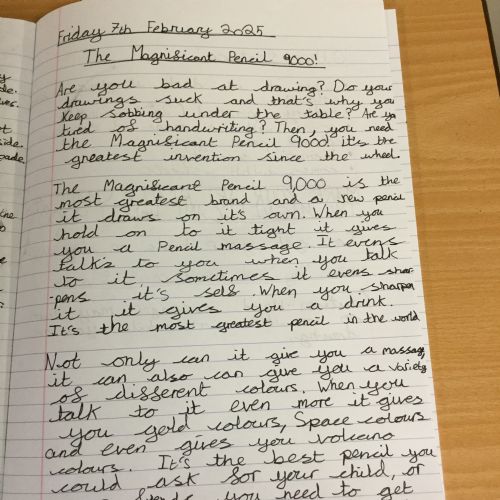 Friday 7th February 2025
The Magnificant Pencil 9000!
Are you bad at drawing? Do your
drawings suck and that's why you
keep sobbing under the table? Are you
tired of handwriting? Then, you need
the Magnificant Pencil 9000! it's the
greatest invention since the wheel.
The Magnificant Pencil 9,000 is the
most greatest brand and a new pencil
it draws on it's own. When you
hold on to it tight it gives
you a Pencil massage. It evens
talk's to you when you talk
to it sometimes it evens shar-
pens it's self. When you sharpen
it it gives you a drink.
It's the most greatest pencil in the world
Not only can it give you a massage,
it can also can give you a variety
of different colours. When you
talk to it even more it gives
you gold colours, Space colours
and even gives you volcano
colours. It's the best pencil you
could ask for your child, or
you need to get